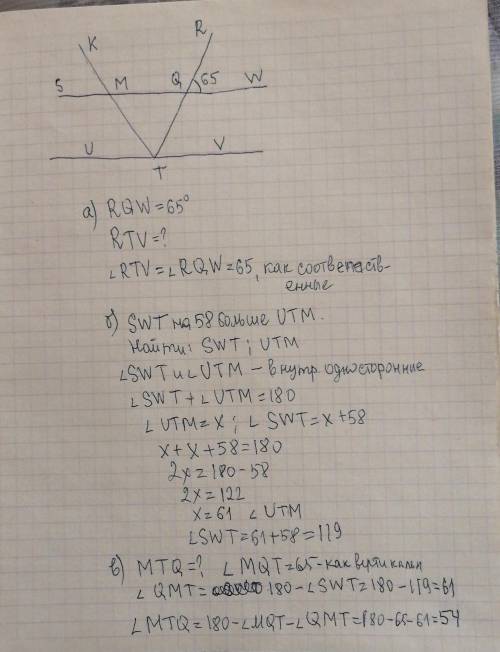 K R
S M Q 65 W
U V
T
а) RQW=65°
RTV=?
∠RTV=∠RQW=65, как соответств-
енные
б) SWT на 58 больше UTM.
Найти: SWT; UTM
∠SWT и ∠UTM – внутр. односторонние
∠SWT+∠UTM=180
∠UTM=x; ∠SWT=x+58
x+x+58=180
2x=180-58
2x=122
x=61 ∠UTM
∠SWT=61+58=119
в) MTQ=? ∠MQT=65-как вертикальн
∠QMT= 180-∠SWT=180-119=61
∠MTQ=180-∠MQT-∠QMT=180-65-61=54